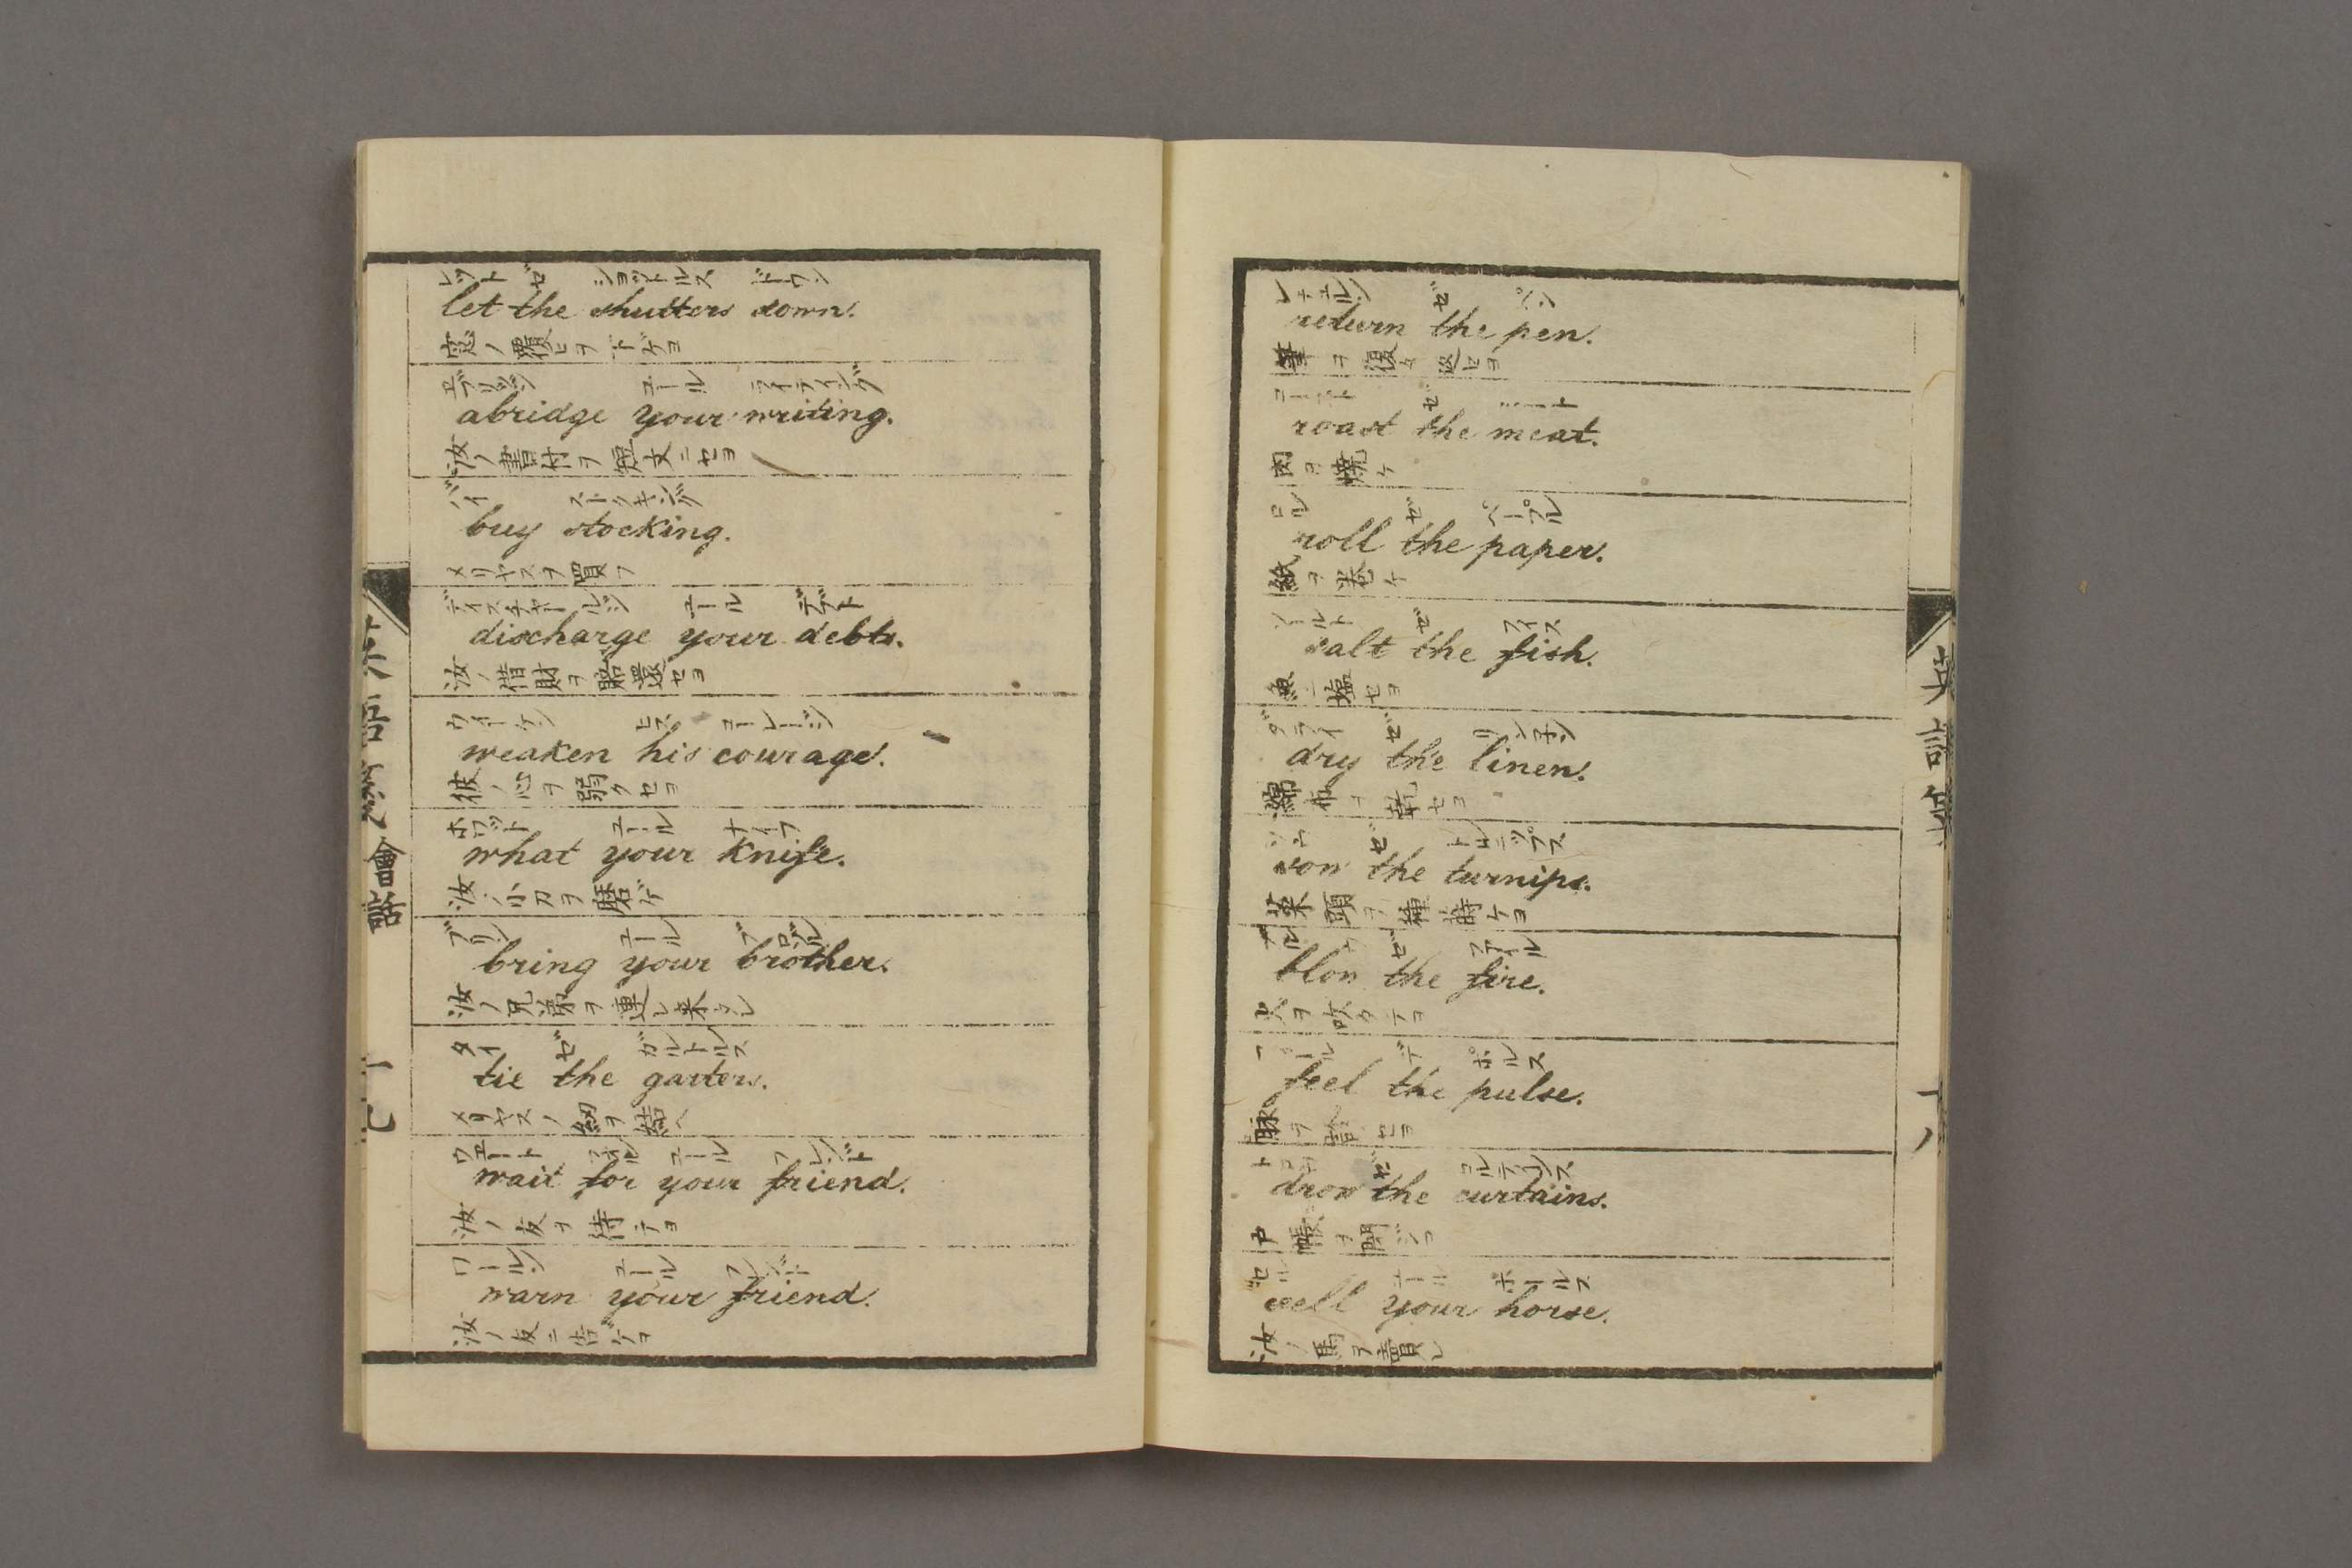 レット ゼ ショットルス ドウン
let the shutters down.
窓ノ覆ヒヲ下ゲヨ
エブリジ ユール ライティング
abridge your writing.
汝ノ書付ヲ短文ニセヨ
バイ ストッキング
buy stocking.
メリヤスヲ買フ
ディスチャールジ ユール デブト
discharge your debts.
汝ノ借財ヲ賠還セヨ
ウィーケン ヒス コーレージ
weaken his courage.
彼ノ心ヲ弱クセヨ
ホワット ユール ナイフ
what your knife.
汝ノ小刀ヲ磨ゲ
ブリン ユール ブロゾル
bring your brother.
汝ノ兄弟ヲ連レ来
タイ ゼ ガルトルス
tie the garters.
メリヤスノ紐ヲ結ヘ
ウェート フヲル ユール フレンド
wait for your friend.
汝ノ友ヲ待テヨ
ワールン ユール フレンド
warn your friend.
汝ノ友ニ告ゲヨ
會話
レチュルン ゼ ペン
return the pen.
筆ヲ復タ返セヨ
ロースト ゼ ミート
roast the meat.
肉ヲ焼ケ
ロル ゼ ペープル
roll the paper.
紙ヲ巻ケ
ソールト ゼ フイス
salt the fish.
魚ニ塩セヨ
ダライ ゼ リンネン
dry the linen.
綿布ヲ乾セヨ
ソウ ゼ トルニップス
sow the turnips.
菜頭ヲ種蒔ケヨ
ブルウ ゼ ファイル
blow the fire.
火ヲ吹
フィール デ ポルス
feel the pulse.
脉ヲ診セヨ
ゼ コルティンス
drow the curtains.
戸帳ヲ閉ジ
セル ユール ホールス
sell your horse.
汝ノ馬ヲ賣レ